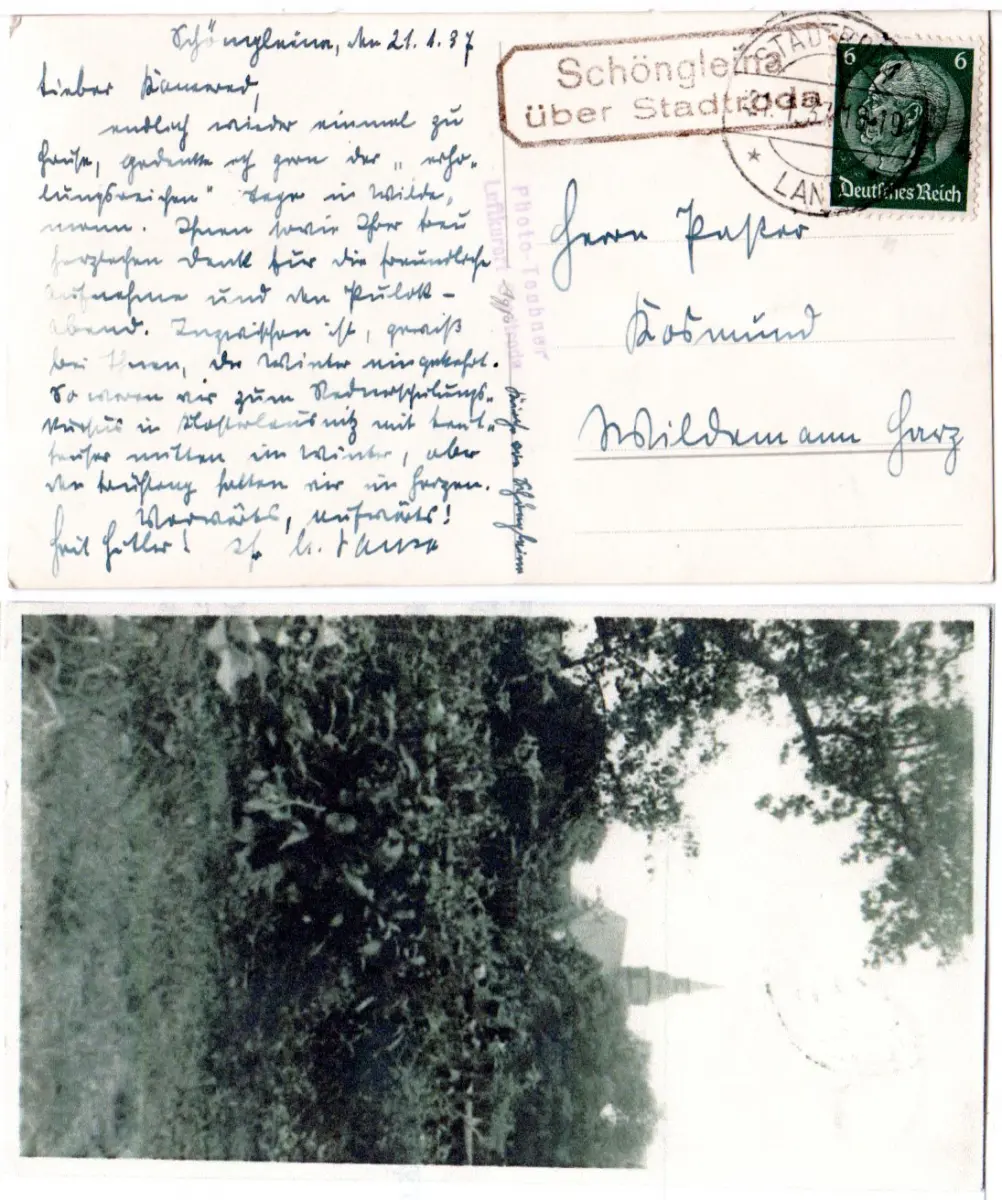 Schöngleina, den 21.1.37
Lieber Kamerad,
endlich wieder einmal zu
Hause, gedenke ich gern der „erho-
lungsreichen" Tage in Wilde-
mann. Ihnen sowie Ihrer Frau
herzlichen Dank für die freundliche
Aufnahme und den
abend. Inzwischen ist, gewiß
bei Ihnen, der Winter eingekehrt.
So waren wir zum Rednerschulungs-
kursus in Klosterlausnitz mit
mitten im Winter, aber
den Frühling hatten wir im Herzen.
Vorwärts, aufwärts!
Heil Hitler! Ihr
Schöngleina
über Stadtroda
STADTRODA
21.1.37
LAND
6 6
Deutsches Reich
Photo-Taubner
Luftkurort Stadtroda
Kirche von Schöngleina
Herrn Pastor
Kosmund
Wildemann Harz